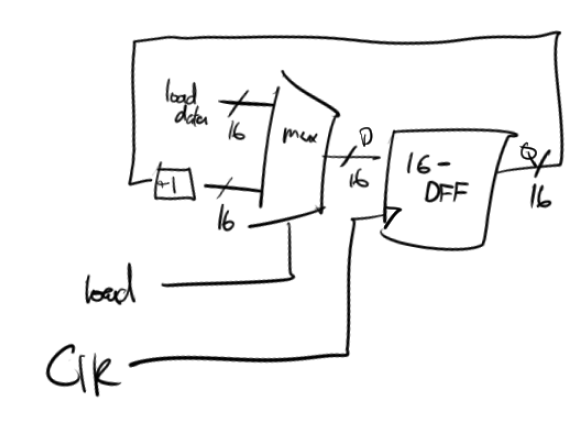 load
data
16
mux
D
16
16-
DFF
Q
16
+1
16
load
Clk